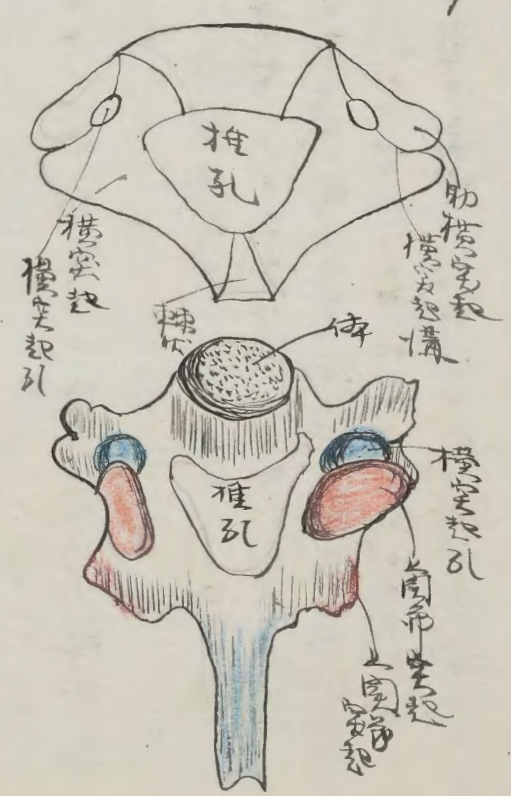 椎
孔
肋横突起
横突起溝
横突起
横突起孔
棘状
体
椎
孔
横突起孔
上関節突起
上関節
突起